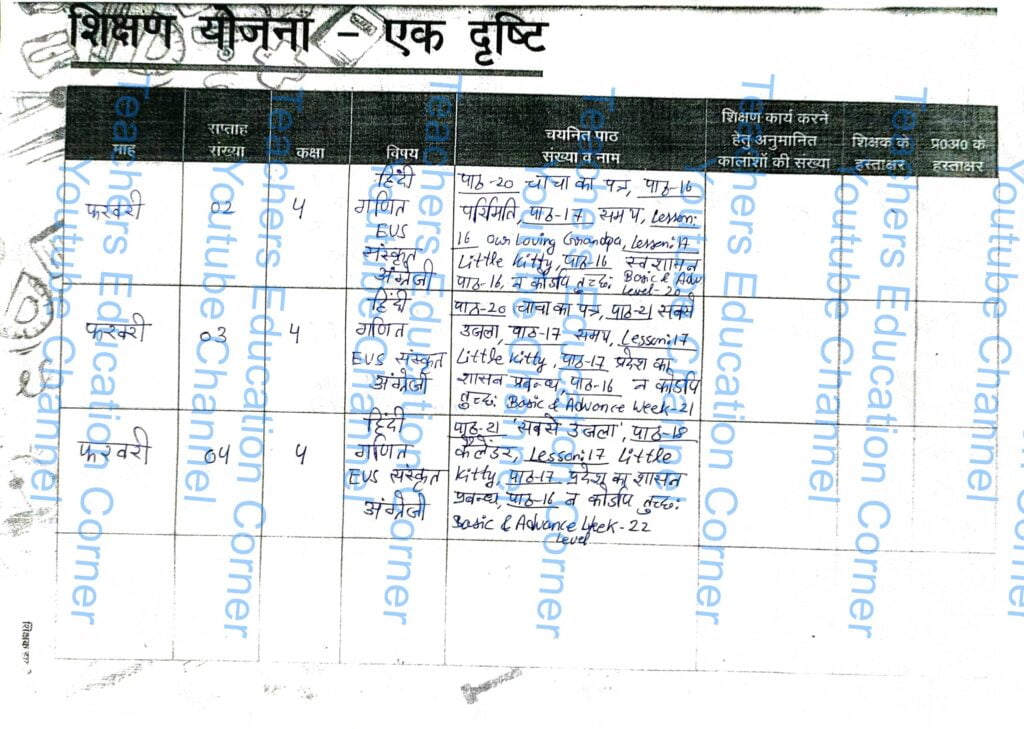 शिक्षण योजना – एक दृष्टि
माह
सप्ताह संख्या
कक्षा
विषय
चयनित पाठ संख्या व नाम
शिक्षण कार्य करने हेतु अनुमानित कालांशों की संख्या
शिक्षक के हस्ताक्षर
प्र0अ0 के हस्ताक्षर
फरवरी
02
4
हिंदी
गणित
EVS
संस्कृत
अंग्रेजी
पाठ-20 चाचा का पत्र, पाठ-16
परिमिति, पाठ-17 समय, Lesson:
16 our Loving Grandpa, Lesson:17
Little Kitty, पाठ-16 स्वशासन
पाठ-16, न कोऽपि तुच्छः Basic & Adv
Level-20
फरवरी
03
4
हिंदी
गणित
EVS संस्कृत
अंग्रेजी
पाठ-20 चाचा का पत्र, पाठ-21 सबसे
उजला, पाठ-17 समय, Lesson:17
Little Kitty, पाठ-17 प्रदेश का
शासन प्रबन्ध, पाठ-16 न कोऽपि
तुच्छः Basic & Advance Week-21
फरवरी
04
4
हिंदी
गणित
EVS संस्कृत
अंग्रेजी
पाठ-21 'सबसे उजला', पाठ-18
कैलेंडर, Lesson:17 Little
Kitty, पाठ-17 प्रदेश का शासन
प्रबन्ध, पाठ-16 न कोऽपि तुच्छः
Basic & Advance Week-22
Level
Teachers Education Corner
Youtube Channel
Teachers Education Corner
Youtube Channel
Teachers Education Corner
Youtube Channel
Teachers Education Corner
Youtube Channel
Teachers Education Corner
Youtube Channel
Teachers Education Corner
Youtube Channel